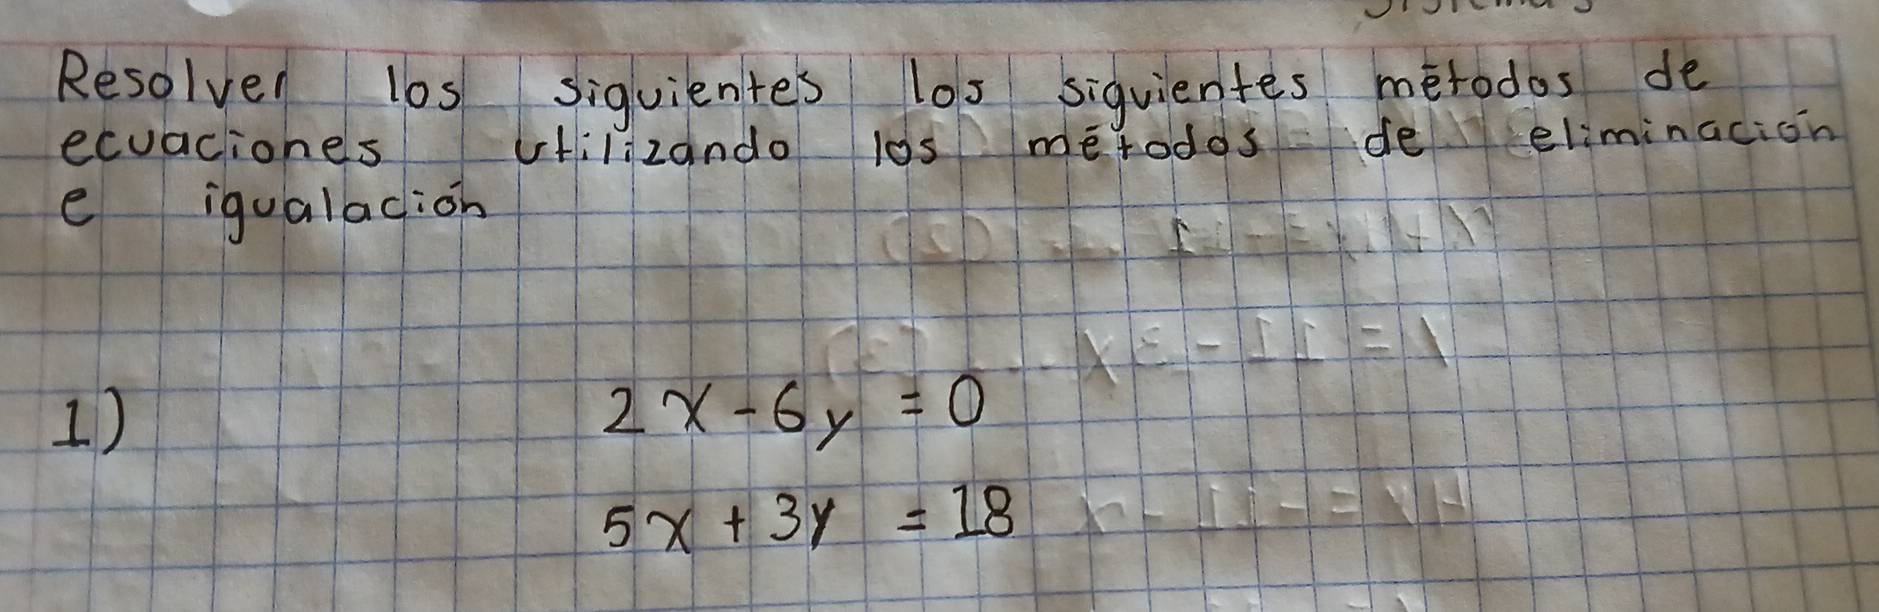 Resolver los siguientes los siguientes métodos de
ecuaciones utilizando los métodos de eliminación
e igualación
1) 2x - 6y = 0
5x + 3y = 18